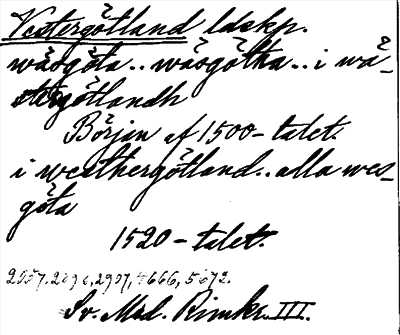 Vestergötland ldskp.
wäsgöta.. wäsgötha.. i wä-
stergötlandh
Början af 1500-talet.
i westhergötland.. alla wes-
göta
1520-talet.
2957, 4666, 5672.
Sv. Med. Rimkr. III.